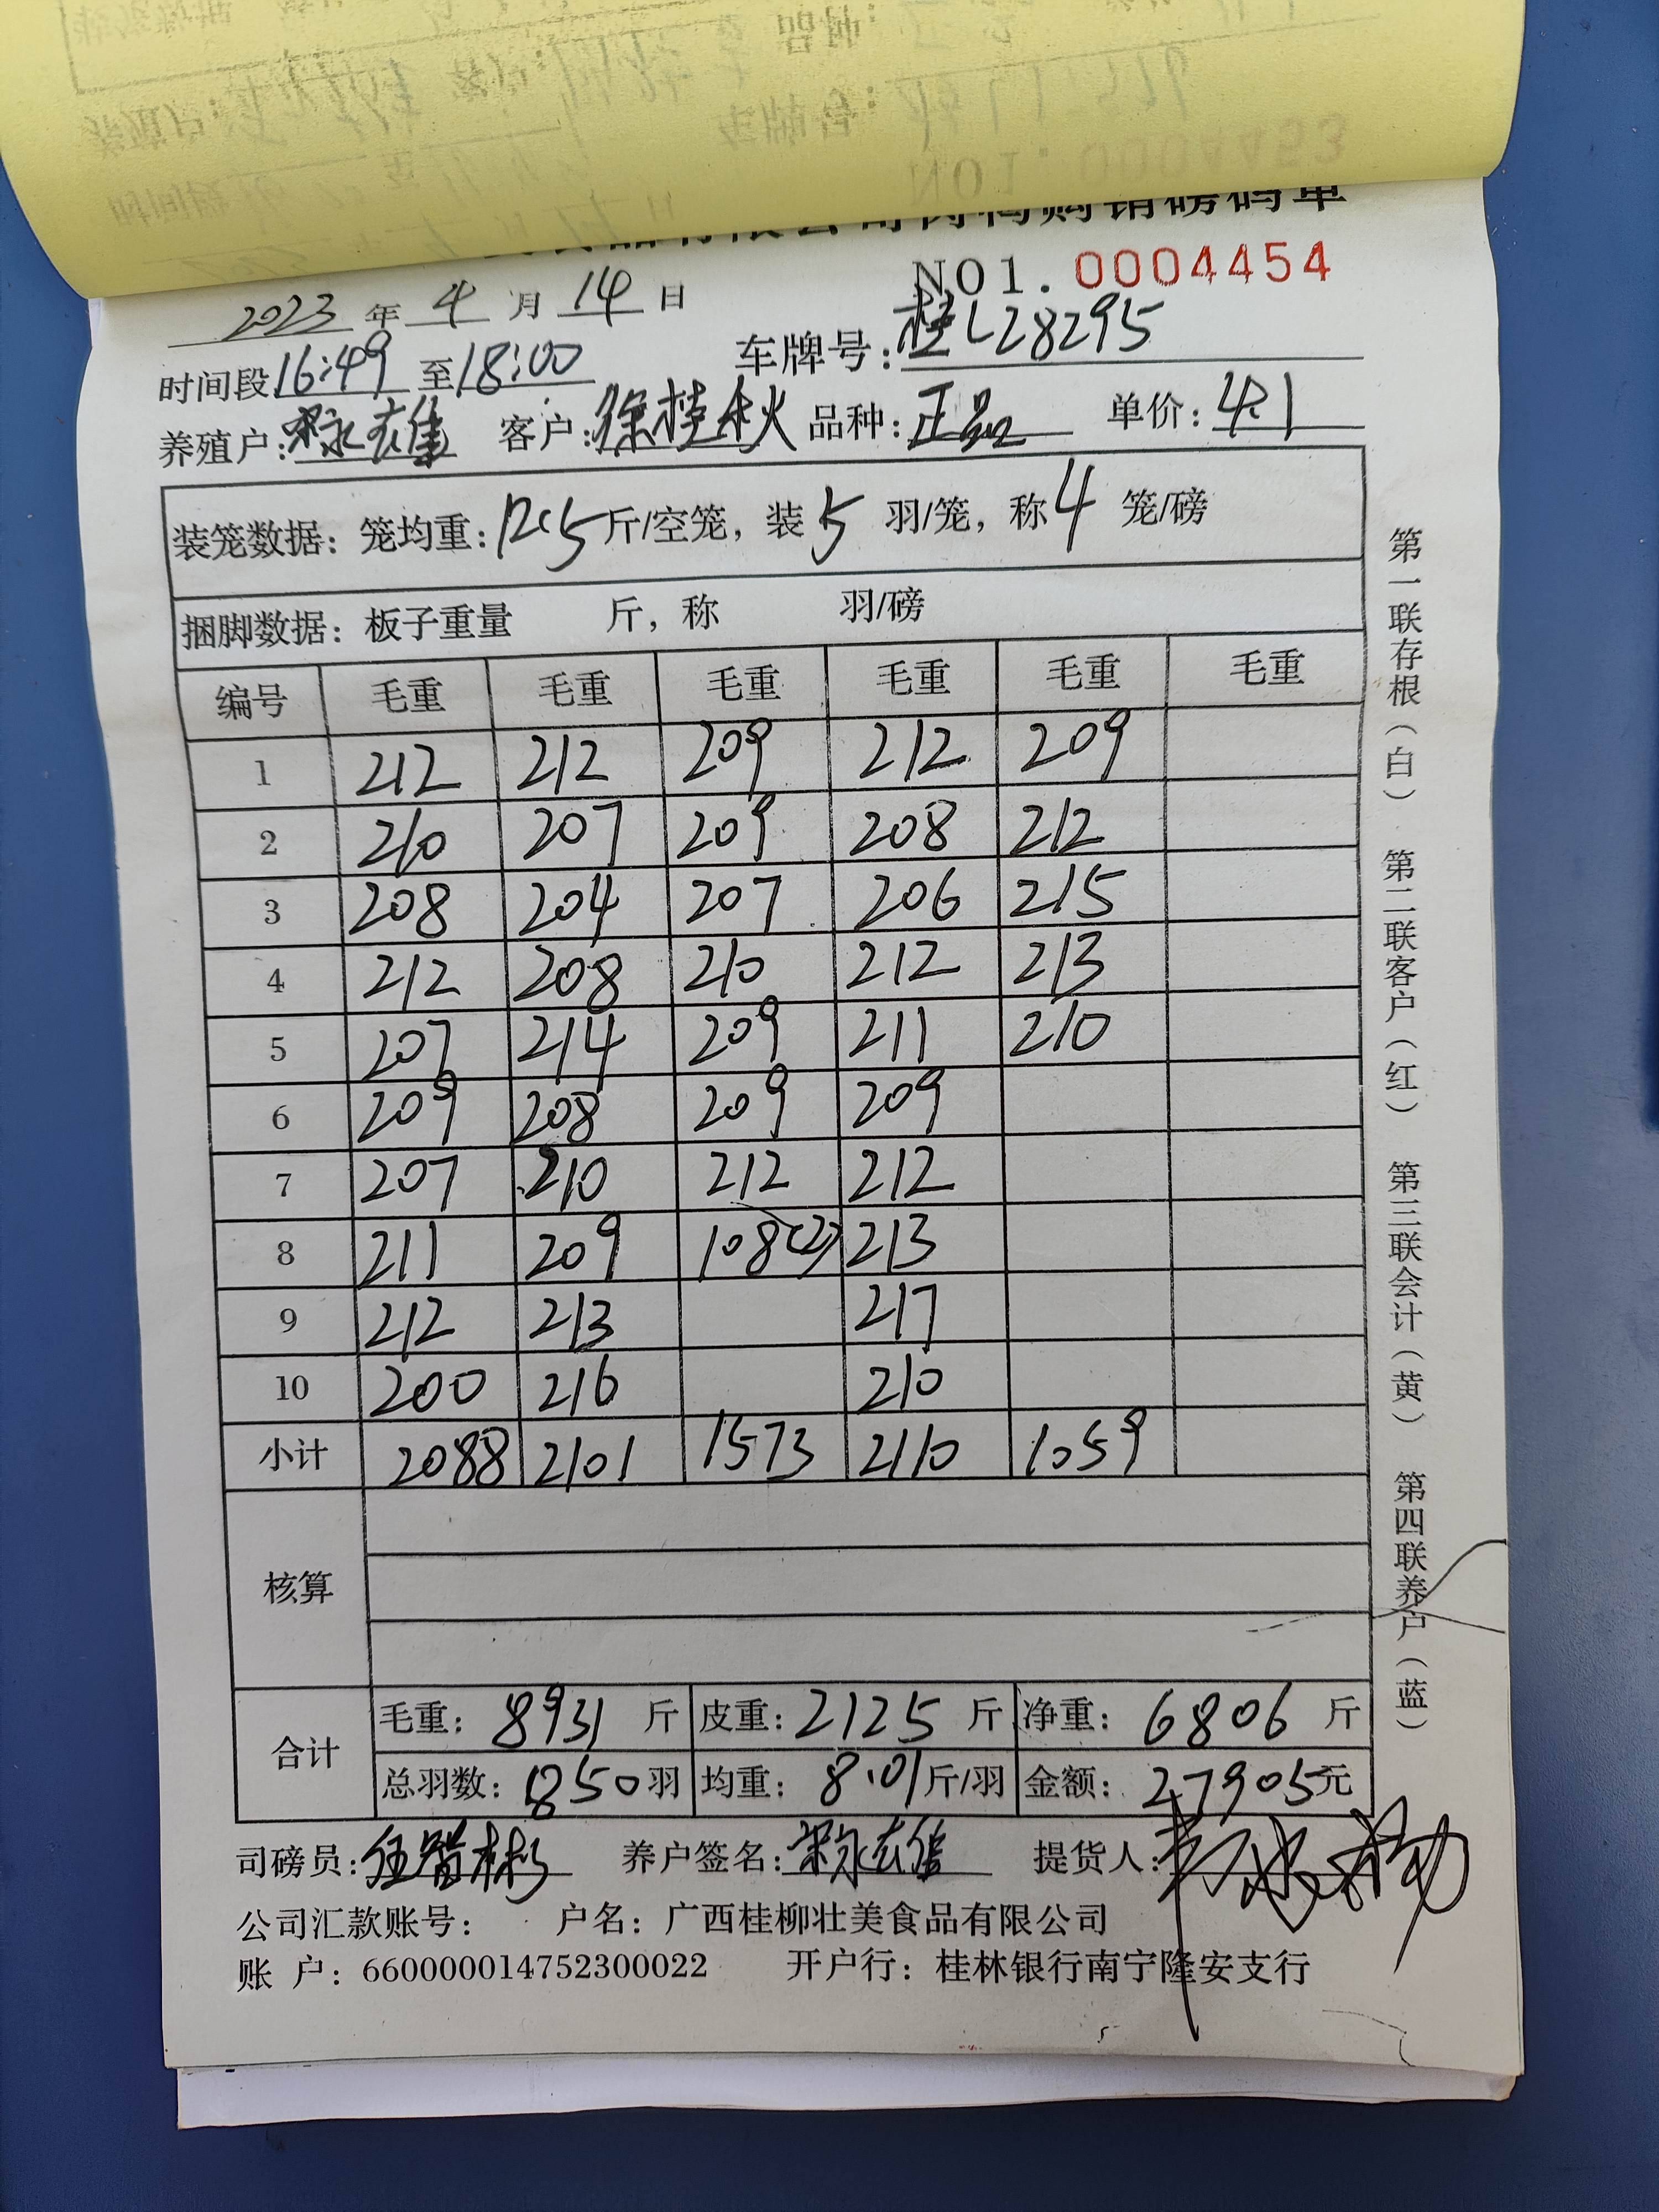 NO1.0004453
食品有限公司肉鸭购销磅码单
NO1.0004454
2023年4月14日
时间段16:49至18:00 车牌号:桂L28295
养殖户: 客户:徐桂秋 品种:正品 单价:4.1
装笼数据:笼均重:12.5斤/空笼,装5羽/笼,称4笼/磅
捆脚数据:板子重量 斤,称 羽/磅
编号 毛重 毛重 毛重 毛重 毛重 毛重
1 212 212 209 212 209
2 210 207 209 208 212
3 208 204 207 206 215
4 212 208 210 212 213
5 207 214 209 211 210
6 209 208 209 209
7 207 210 212 212
8 211 209 108(2) 213
9 212 213 217
10 200 216 210
小计 2088 2101 1573 2110 1059
核算
合计 毛重:8931斤 皮重:2125斤 净重:6806斤
总羽数:850羽 均重:8.01斤/羽 金额:27905元
司磅员: 养户签名: 提货人:
公司汇款账号: 户名:广西桂柳壮美食品有限公司
账 户:660000014752300022 开户行:桂林银行南宁隆安支行
第一联存根(白) 第二联客户(红) 第三联会计(黄) 第四联养户(蓝)